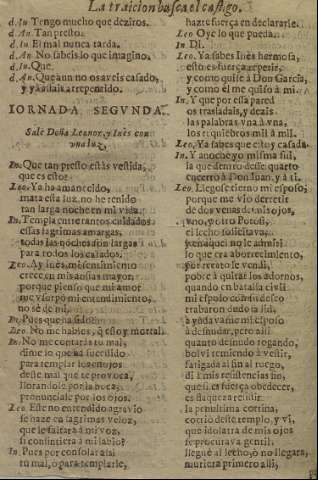 La traicion busca el castigo.
d. Iu Tengo mucho que deziros.
d. An. Tan presto.
d. Iu El mal nunca tarda.
d. An. No sabeis lo que imagino.
d. Iu. Que.
d. An. Que aun no os aveis casado,
y ya estais arrepentido.
IORNADA SEGVNDA.
Sale Doña Leonor, y Inès con
vna luz.
In. Que tan presto estàs vestida,
que es esto?
Leo. Ya ha amanecido,
mata essa luz, no he tenido
tan larga noche en mi vida.
In. Templa entre tantos cuidados
essas lagrimas amargas,
todas las noches son largas
para todos los casados.
Leo. Ay Inès, mi sentimiento
crece en mi
porque pienso que mi amor
me vsurpò mi entendimiento,
no sè de mi.
In. Pues que ha sido?
Leo. No me hables, q̃ estoy mortal.
In. No me contaràs tu mal,
dime lo que ha sucedido
para templar los enojos
deste mal que te provoca,
llorandole por la boca,
pronunciale por los ojos.
Leo. Este no entendido agravio
se haze en lagrimas veloz,
que le faltarà à mi voz,
si consintiera à mi labio?
In. Pues por consolar assi
tu mal, ò para templarle,
hazte fuerça en declararle.
Leo. Oye lo que pueda.
In. Di.
Leo. Ya sabes Inès hermosa,
esto es fuerça repetir,
y como quise à Don Garcia,
y como èl me quiso à mi.
In. Y que por essa pared
os trasladais, y dezis
las palabras vna à vna,
los requiebros mil à mil.
Leo. Ya sabes que estoy casada.
In. Y anoche yo misma fui,
la que dentro desse quarto
encerrò à Don Iuan, y à ti.
Leo. Llegose tierno mi esposo,
porque me viò derretir
de dos venas de mis ojos,
vno, y otro Potosì,
el lecho solicitava,
y en aquel no le admitì
lo que era aborrecimiento,
por recato se vendì,
pobre à quitar los adornos,
quando en batalla civil
mi esposo con su deseo
trabaron duda
ayudava me mi esposo
à desnudar, pero alli
quanto desnudo rogando,
bolvì temiendo à vestir,
fatigada al fin al ruego,
di à mis resistencias fin,
que si es fuerça obedecer,
es flaqueza resistir.
la penultima cortina,
corriò deste templo, y vi,
que idolatra de mis ojos
se procurava gentil:
lleguè al lecho, ò no llegara,
muriera primero alli,